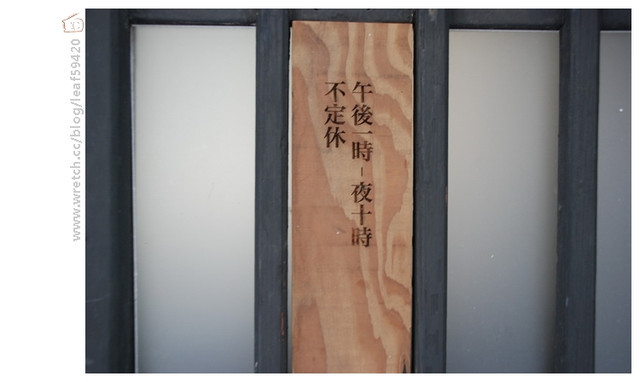 午後一時-夜十時
不定休
www.wretch.cc/blog/leaf59420